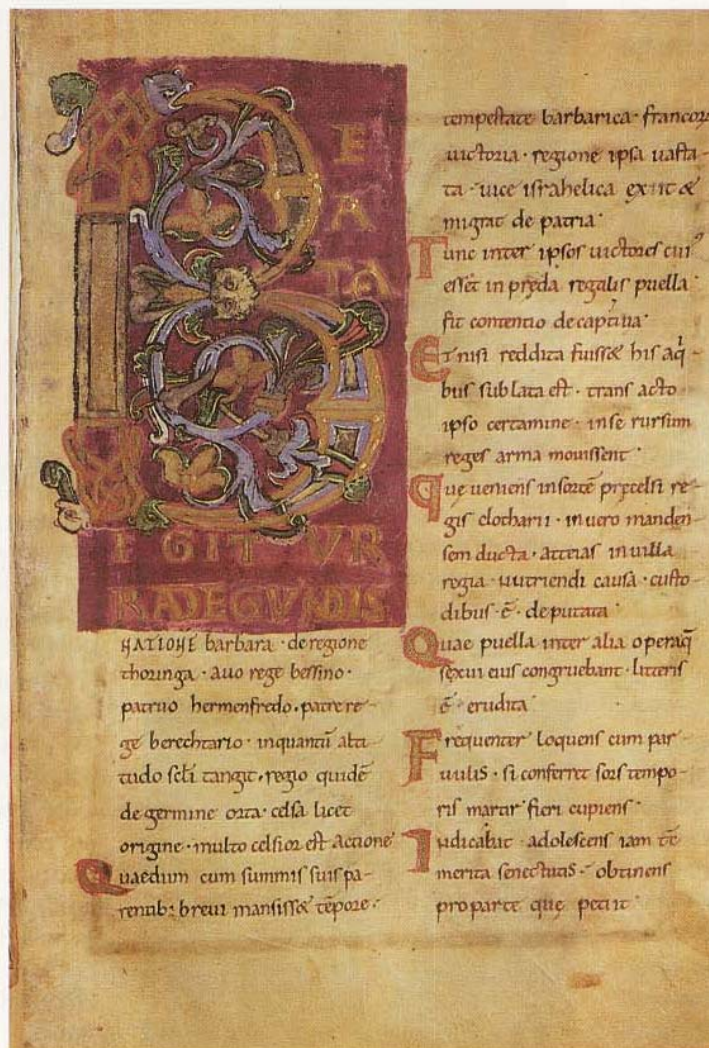 B E
A
TA
IGITVR
RADEGUNDIS
NATIONE barbara · de regione
thoringa · auo rege bessino ·
patruo hermenfredo · patre re-
ge berechtario · inquantū alti-
tudo scłi tangit · regio quidē
de germine orta · celsa licet
origine · multo celsior est actione
Quaedum cum summis suis pa-
rentib: breui mansiss& tēpore ·
tempestate barbarica · francoꝝ
uictoria · regione ipsa uasta-
ta · uice israhelica exiit &
migrat de patria ·
Tunc inter ipsos uictores cuiꝰ
esset in pręda regalis puella
fit contentio de captiua ·
Et nisi reddita fuiss& his a q̄-
bus sublata est · trans acto
ipso certamine · inse rursum
reges arma mouissent ·
Quę ueniens insortē pręcelsi re-
gis clotharii · in uero manden-
sem ducta · atteias in uilla
regia · nutriendi causa · custo-
dibus · ē · deputata ·
Quae puella inter alia opera q̄
sexui eius congruebant · litteris
ē · erudita ·
Frequenter loquens cum par-
uulis · si conferret sors tempo-
ris martir fieri cupiens ·
Indicabat · adolescens iam tē
merita senectutis · obtinens
pro parte quę petiit ·